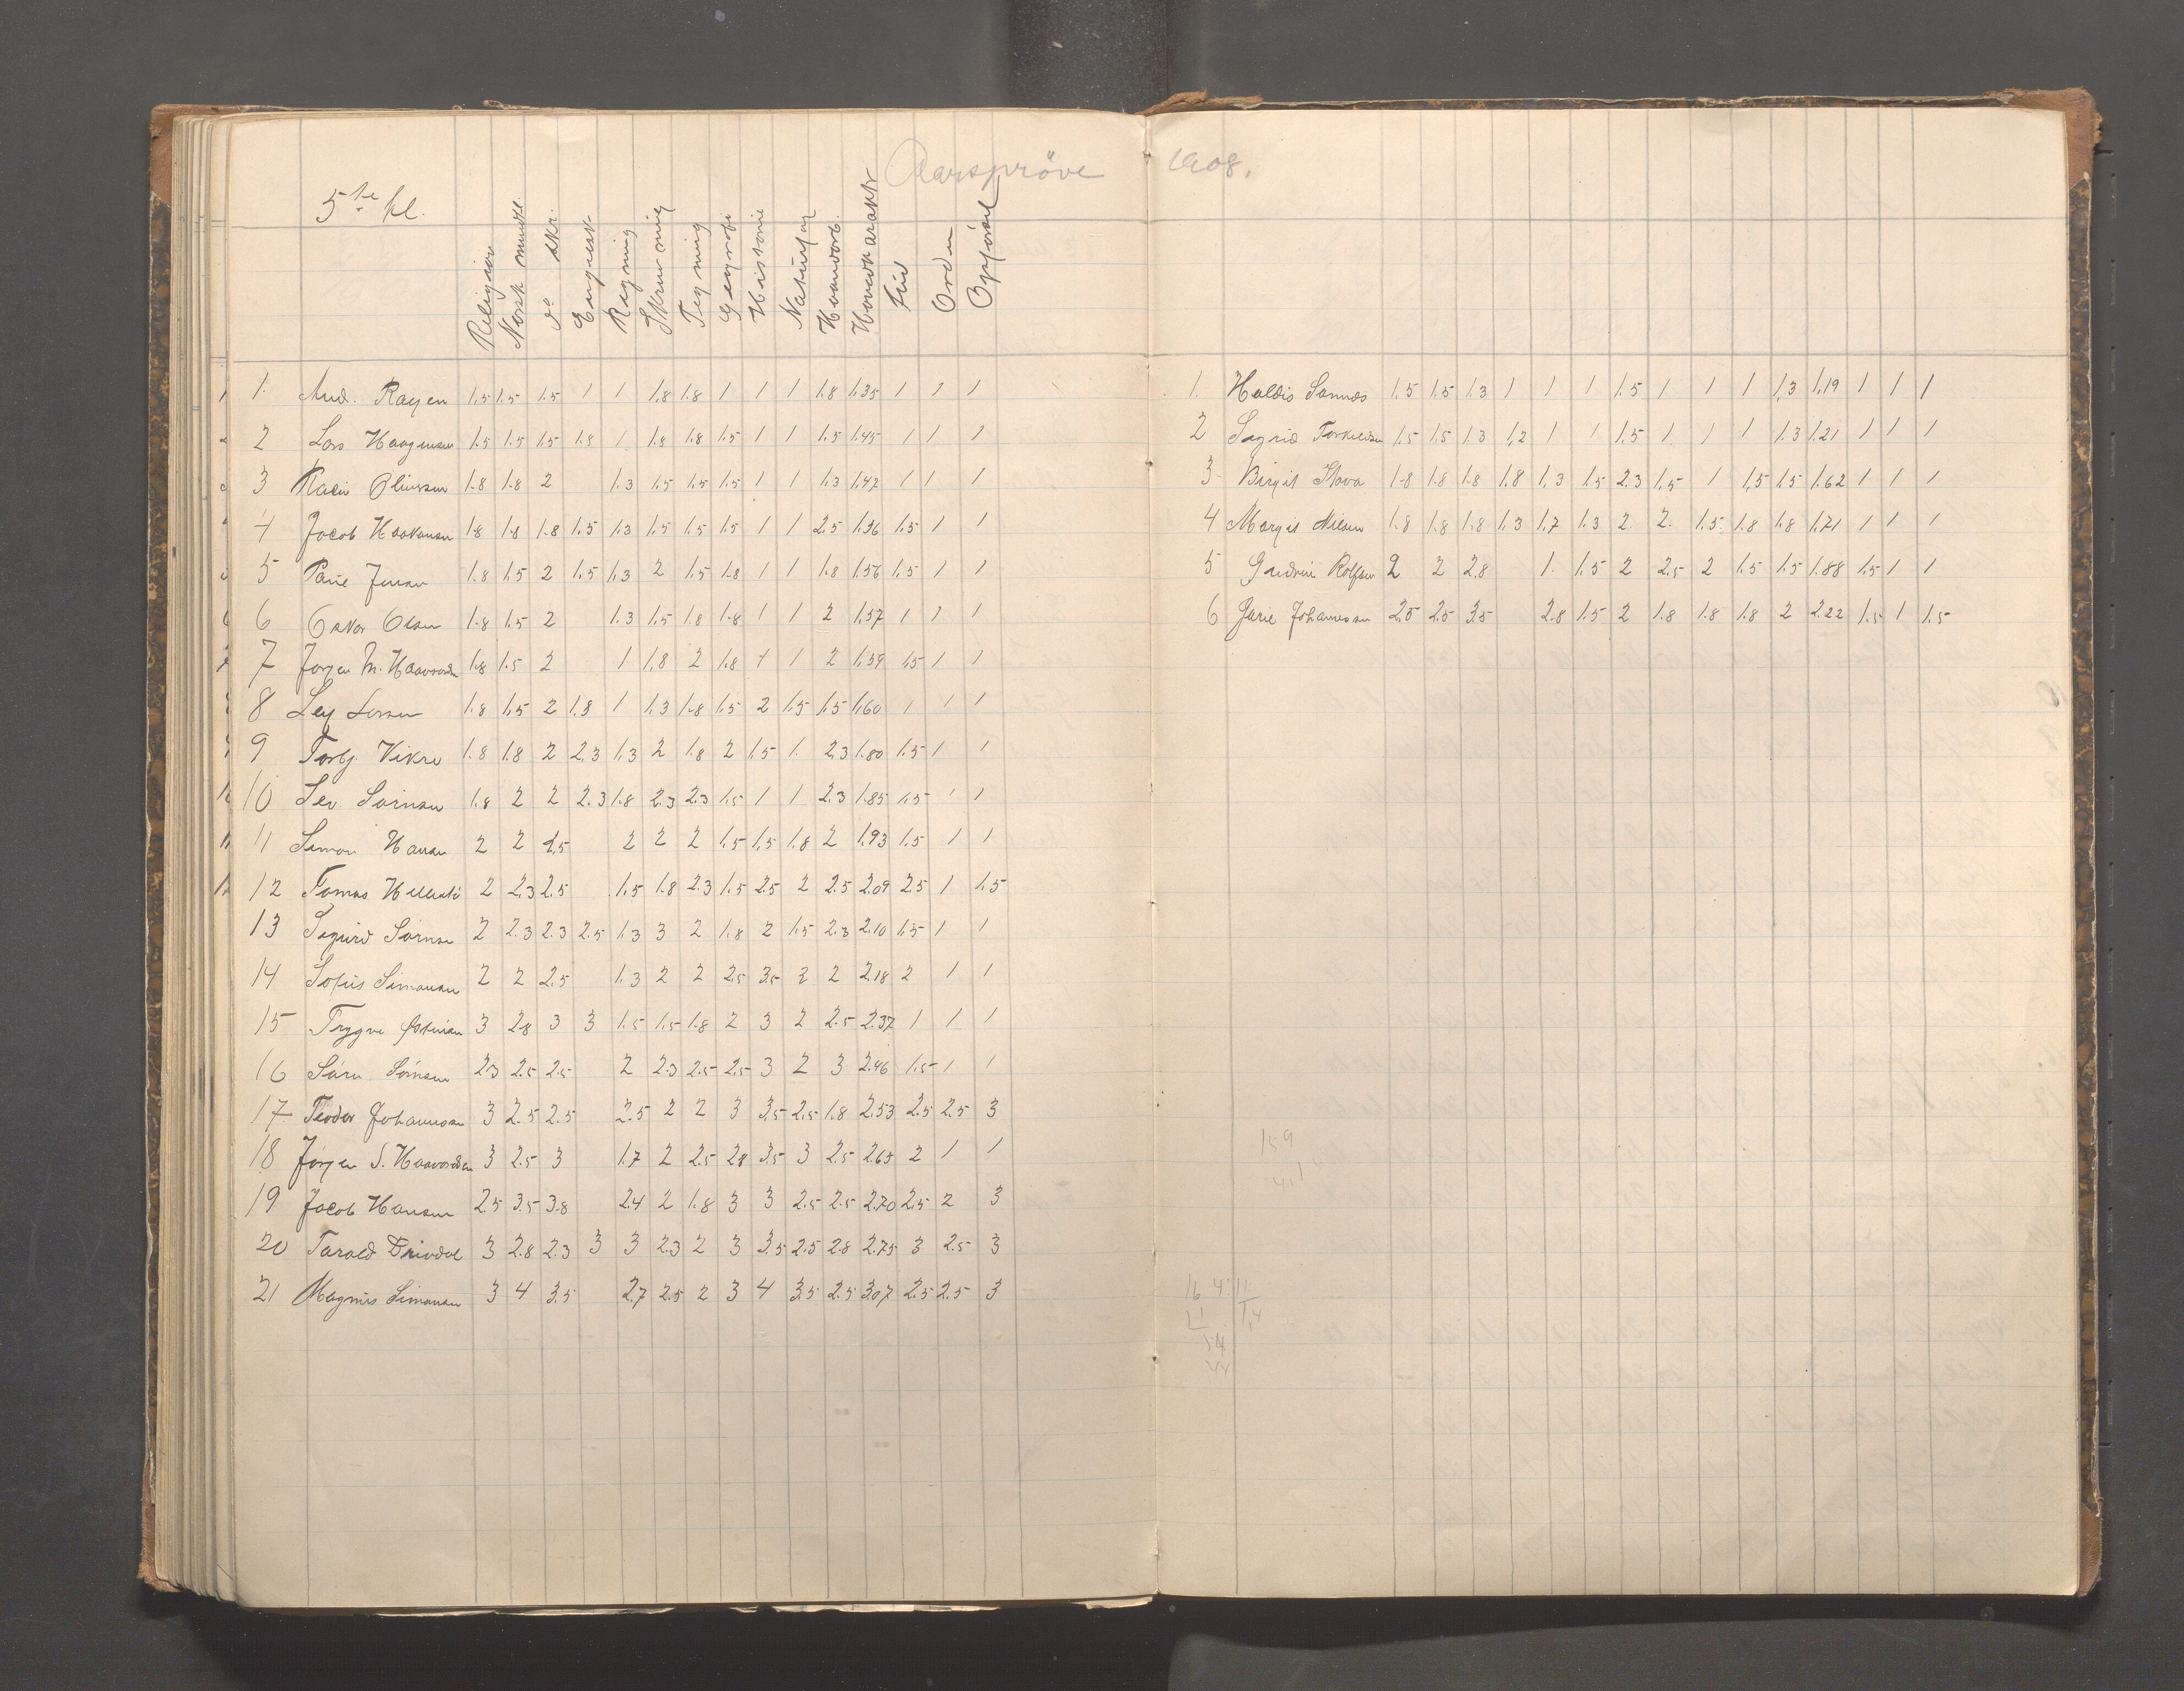 Aarspröve 1908.
5te kl.
Religion
Norsk mundtl.
do skr.
Engelsk
Regning
Skrivning
Tegning
Geografi
Historie
Naturfag
Haandarb.
Hovedkarakt.
Flid
Orden
Opførsel
1. And. Rayen 1.5 1.5 1.5 1 1 1.8 1.8 1 1 1 1.8 1.35 1 1 1
2 Lars Haagensen 1.5 1.5 1.5 1.8 1 1.8 1.8 1.5 1 1 1.5 1.45 1 1 1
3 Oliversen 1.8 1.8 2 1.3 1.5 1.5 1.5 1 1 1.3 1.47 1 1 1
4 Jacob Haakonsen 1.8 1.8 1.8 1.5 1.3 1.5 1.5 1.5 1 1 2.5 1.36 1.5 1 1
5 Jensen 1.8 1.5 2 1.5 1.3 2 1.5 1.8 1 1 1.8 1.56 1.5 1 1
6 Oskar Olsen 1.8 1.5 2 1.3 1.5 1.8 1.8 1 1 2 1.57 1 1 1
7 Jørgen M. Haavordsen 1.8 1.5 2 1 1.8 2 1.8 1 1 2 1.59 1.5 1 1
8 Leif Larsen 1.8 1.5 2 1.8 1 1.3 1.8 1.5 2 1.5 1.5 1.60 1 1 1
9 Torbj. Vikre 1.8 1.8 2 2.3 1.3 2 1.8 2 1.5 1. 2.3 1.80 1.5 1 1
10 Sev. Sørnsen 1.8 2 2 2.3 1.8 2.3 2.3 1.5 1 1 2.3 1.85 1.5 1 1
11 Simon Hansen 2 2 1.5 2 2 2 1.5 1.5 1.8 2 1.93 1.5 1 1
12 Tomas 2 2.3 2.5 1.5 1.8 2.3 1.5 2.5 2 2.5 2.09 2.5 1 1.5
13 Sigurd Sørnsen 2 2.3 2.3 2.5 1.3 3 2 1.8 2 1.5 2.3 2.10 1.5 1 1
14 Sofus Simonsen 2 2 2.5 1.3 2 2 2.5 3.5 2 2 2.18 2 1 1
15 Trygve 3 2.8 3 3 1.5 1.5 1.8 2 3 2 2.5 2.37 1 1 1
16 Sørn Sørnsen 2.3 2.5 2.5 2 2.3 2.5 2.5 3 2 3 2.46 1.5 1 1
17 Teodor Johannesen 3 2.5 2.5 2.5 2 2 3 3.5 2.5 1.8 2.53 2.5 2.5 3
18 Jørgen S. Haavordsen 3 2.5 3 1.7 2 2.5 2.8 3.5 3 2.5 2.65 2 1 1
19 Jacob Hansen 2.5 3.5 3.8 2.4 2 1.8 3 3 2.5 2.5 2.70 2.5 2 3
20 Tarald Drivdal 3 2.8 2.3 3 3 2.3 2 3 3.5 2.5 2.8 2.75 3 2.5 3
21 Magnus Simonsen 3 4 3.5 2.7 2.5 2 3 4 3.5 2.5 3.07 2.5 2.5 3
1. Haldis Sannes 1.5 1.5 1.3 1 1 1 1.5 1 1 1 1.3 1.19 1 1 1
2 Sigrid Torkelsen 1.5 1.5 1.3 1.2 1 1 1.5 1 1 1 1.3 1.21 1 1 1
3 Birgit Stava 1.8 1.8 1.8 1.8 1.3 1.5 2.3 1.5 1 1.5 1.5 1.62 1 1 1
4 Margit Nilsen 1.8 1.8 1.8 1.3 1.7 1.3 2. 2. 1.5 1.8 1.8 1.71 1 1 1
5 Gudrun Rolfsen 2 2 2.8 1. 1.5 2 2.5 2 1.5 1.5 1.88 1.5 1 1
6 Johannesen 2.5 2.5 3.5 2.8 1.5 2 1.8 1.8 1.8 2 2.22 1.5 1 1.5